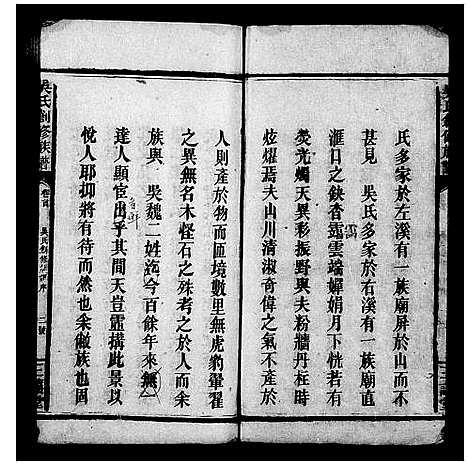 氏多家於左溪有一族廟屏於山
甚見　吳氏多家於右溪有一族廟直
滙日之鈌杳靄雲端嬋娟月下恍若有
熒光燭天異彩振野與夫粉牆丹柱時
炫燿焉夫山川清淑奇偉之氣不產於
人則產於物而匝境數里無虎豹鞏翟
之異無名木怪石之殊考之於前
族與　吳魏二姓迄今百餘年來無
達人顯宦出乎其間天豈虛搆此景以
悅人耶抑將有待而然也余敝族也固
吳氏創修族譜
卷首
二